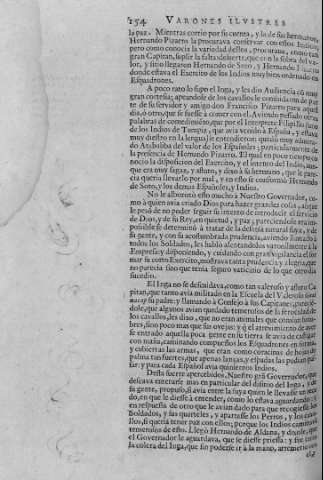 154 VARONES ILVSTRES
la paz. Mientras corrio por su cuenta, y lo de sus hermanos,
Hernando Pizarro la procurava conservar con ellos Indios;
pero como conocia la variedad dellos, procurava, como tan
gran Capitan, suplir la falta de suerte, que con la sobra del va-
lor, y sitio llegaron Hernando de Soto, y Hernando Pizarro
donde estava el Exercito de los Indios muy bien ordenado en
Esquadrones.
A poco rato lo supo el Inga, y les dio Audiencia cõ muy
gran cortesia; apeandose de los cavallos le combidaron de par
te de su servidor y amigo don Francisco Pizarro para aquel
dia, ò otro, que se fuesse à comer con el. Aviendo sabido otras
palabras de comedimiento, que por el Interprete Filipillo
de los Indios de Tumpiz, que avia venido à España, y estava
muy diestro en la lengua, le entendieron: quedò muy admira-
do Atabaliba del valor de los Españoles, particularmente de
la presencia de Hernando Pizarro. El qual en poco tiempo co
nocio la disposicion del Exercito, y el intento del Indio, aun-
que era muy sagaz, y astuto, y dixo à su hermano, que le pare
cia queria llevarlo por mal, y en esto se conformò Hernando
de Soto, y los demas Españoles, y Indios.
No le alborotò esto mucho à Nuestro Governador, co-
mo à quien avia criado Dios para hazer grandes cosas, aũque
le pesò de no poder seguir su intento de introducir el servicio
de Dios, y de su Rey, en quietud, y paz; pareciendole era im-
possible se determinò à tratar de la defensa natural suya, y de
su gente, y con su acostumbrada prudencia, aviendo juntado à
todos los Soldados, les hablò alentandolos varonilmente à la
Empresa: y disponiendo, y cuidando con gran vigilancia el for
mar su corto Exercito, mostrava tanta prudencia, y alegria, que
no parecia sino que tenia seguro vaticinio de lo que otro dia
sucedio.
El Inga no se descuidava, como tan valeroso y astuto Ca
pitan, que tanto avia militado en la Escuela del Valeroso
su padre: y llamando à Consejo à los Capitanes,
dole, que algunos avian quedado temerosos de la ferocidad de
los cavallos, les dixo, que no eran animales que comian hom-
bres, sino poco mas que sus ovejas: y que el atrevimiento de aver
se entrado aquella poca gente en su tierra se avia de castigar
con maña, caminando compuestos los Esquadrones en forma,
y cubiertas las armas, que eran como coracinas de hojas de
palma tan fuertes, que apenas lanças, y espadas las podian
sar: y para cada Español avia quinientos Indios.
Desta suerte apercebidos, Nuestro grã Governador, que
deseava enterarse mas en particular del disinio del Inga, y de
su gente, propuso, si avia entre la suya quien le llevasse un
do, en que le diesse à entender, como le estava aguardando:
en respuesta de otro que le avian dado para que recogiesse los
Soldados, y sus quarteles, y apartasse los Perros, y los cava-
llos, si queria tener paz con ellos; porque los Indios caminavan
temerosos de esto. Llegò Hernando de Aldana, y diziole, que
el Governador le aguardava, que le diesse priessa: y fue tanta
la colera del Inga, que sin poderse ir à la mano, arremetio